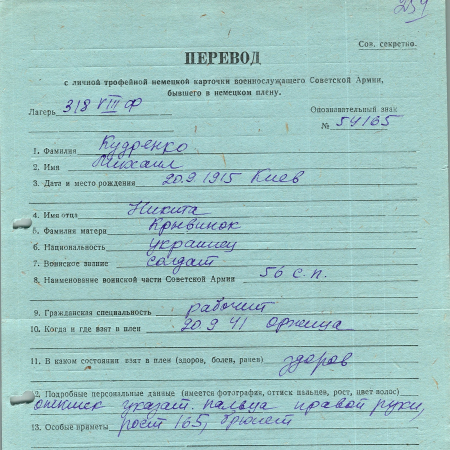 254
Сов. секретно.
ПЕРЕВОД
с личной трофейной немецкой карточки военнослужащего Советской Армии,
бывшего в немецком плену.
Лагерь 318 VIII Ф
Опознавательный знак
№ 54165
1. Фамилия Кудренко
2. Имя Михаил
3. Дата и место рождения 20.9 1915 Киев
4. Имя отца Никита
5. Фамилия матери Крывинок
6. Национальность украинец
7. Воинское звание солдат
8. Наименование воинской части Советской Армии 56 с.п.
9. Гражданская специальность рабочий
10. Когда и где взят в плен 20 9 41 Оржица
11. В каком состоянии взят в плен (здоров, болен, ранен) здоров
12. Подробные персональные данные (имеется фотография, оттиск пальцев, рост, цвет волос)
оттиск указат. пальца правой руки,
13. Особые приметы рост 165, брюнет